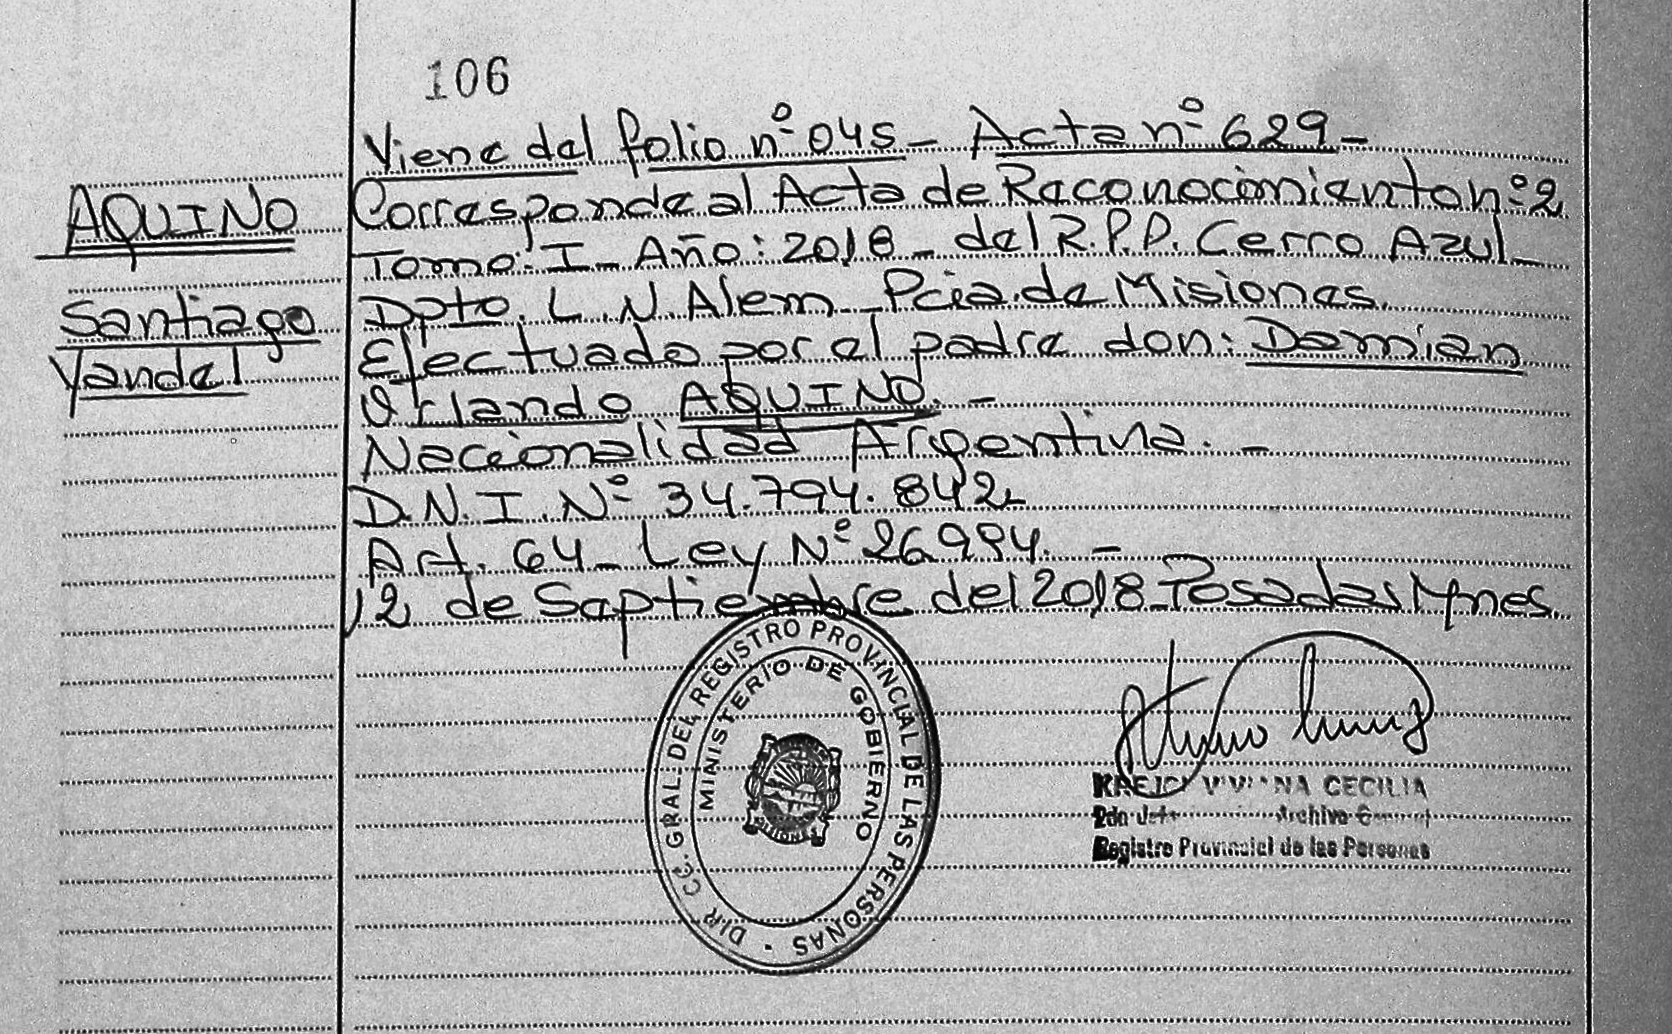 106
Viene del folio nº 045 - Acta nº 629 -
AQUINO
Santiago
Yandel
Corresponde al Acta de Reconocimiento nº: 2
Tomo: I - Año: 2018 - del R.P.P. Cerro Azul -
Dpto. L.N. Alem - Pcia. de Misiones.
Efectuado por el padre don: Damian
Orlando AQUINO. -
Nacionalidad Argentina. -
D.N.I. Nº 34.794.842
Art. 64 - Ley Nº 26994. -
12 de Septiembre del 2018 - Posadas Mnes.
DIR. GRAL. DEL REGISTRO PROVINCIAL DE LAS PERSONAS
MINISTERIO DE GOBIERNO
VIVIANA CECILIA
2da Archivo General
Registro Provincial de las Personas